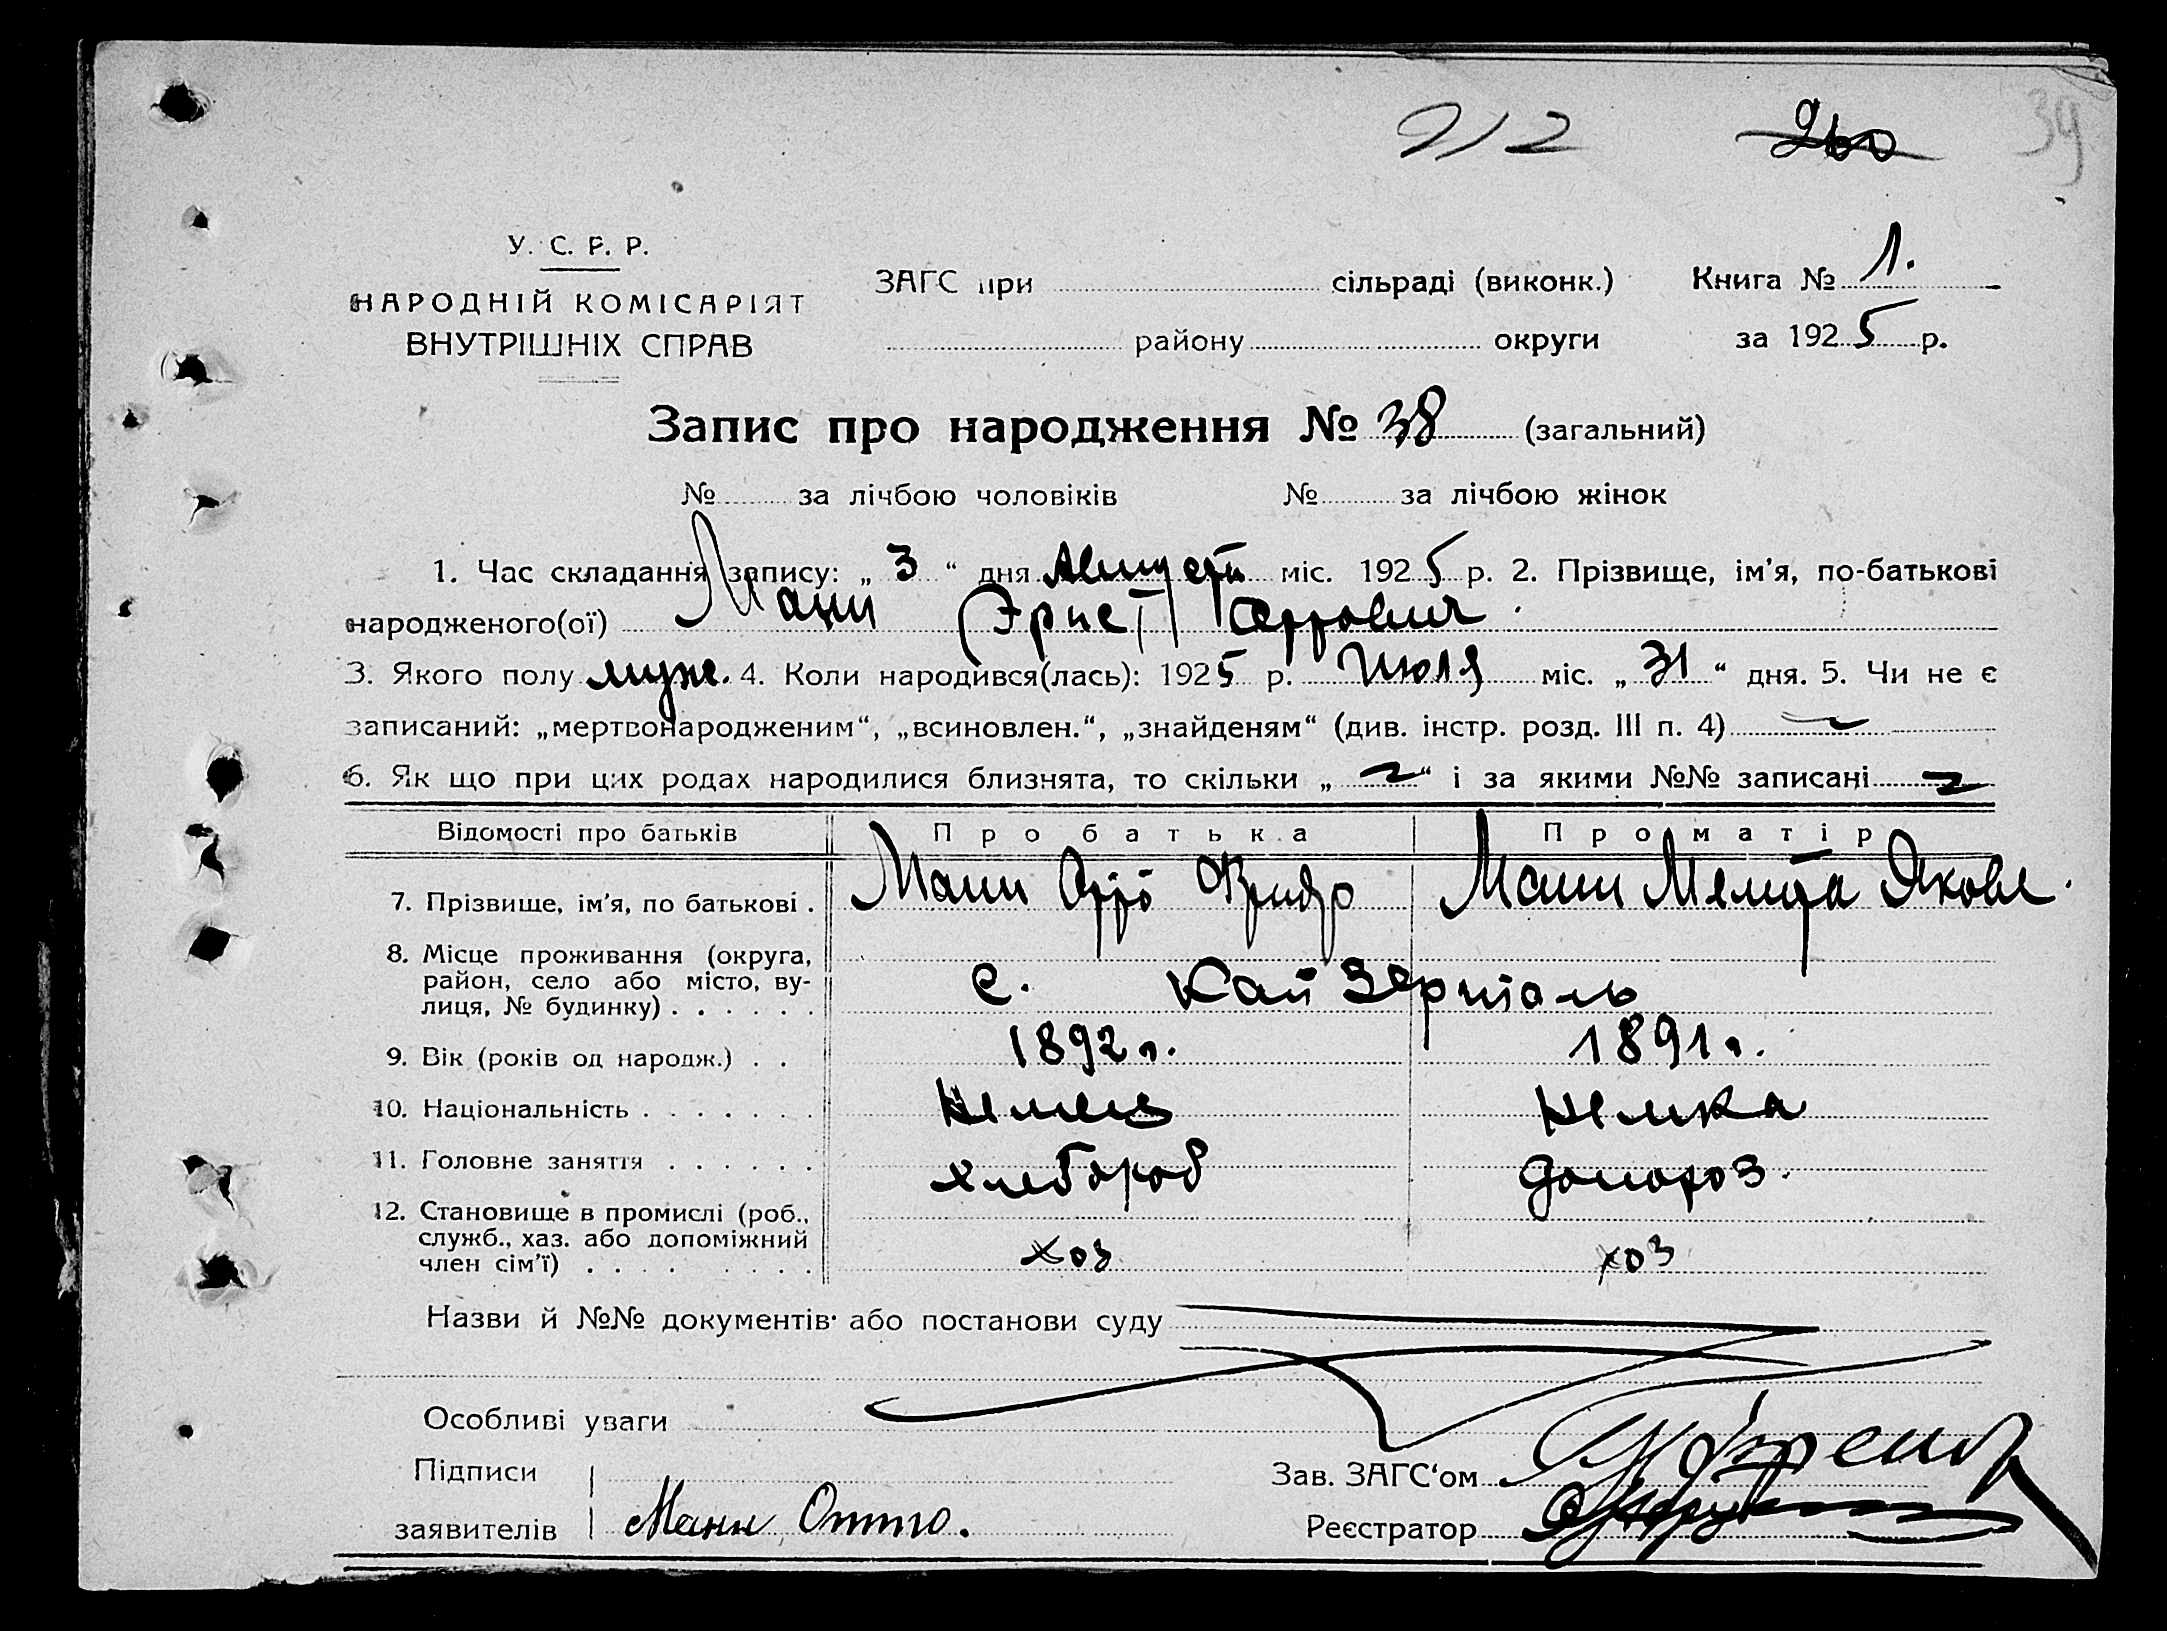 212 260 39
У. С. Р. Р.
НАРОДНІЙ КОМІСАРІЯТ
ВНУТРІШНІХ СПРАВ
ЗАГС при сільраді (виконк.)
району округи
Книга № 1.
за 1925 р.
Запис про народження № 38 (загальний)
№ за лічбою чоловіків № за лічбою жінок
1. Час складання запису: „ 3 “ дня Августа міс. 1925 р. 2. Прізвище, ім'я, по-батькові
народженого(ої) Манн Эрнст Оттович
3. Якого полу муж. 4. Коли народився(лась): 1925 р. Июля міс. „ 31 “ дня. 5. Чи не є
записаний: „мертвонародженим“, „всиновлен.“, „знайденям“ (див. інстр. розд. III п. 4)
6. Як що при цих родах народилися близнята, то скільки „ “ і за якими №№ записані
Відомості про батьків Про батька Про матір
7. Прізвище, ім'я, по батькові . Манн Отто Манн Мелита Яковл.
8. Місце проживання (округа,
район, село або місто, ву-
лиця, № будинку) . . . . . . с. Кайзерталь
9. Вік (років од народж.) . . 1892 г. 1891 г.
10. Національність . . . . . . . немец немка
11. Головне заняття . . . . . . хлебороб домохоз.
12. Становище в промислі (роб.,
служб., хаз. або допоміжний
член сім'ї) . . . . . . . . хоз хоз
Назви й №№ документів або постанови суду
Особливі уваги
Підписи
заявителів Манн Отто.
Зав. ЗАГС‘ом
Реєстратор